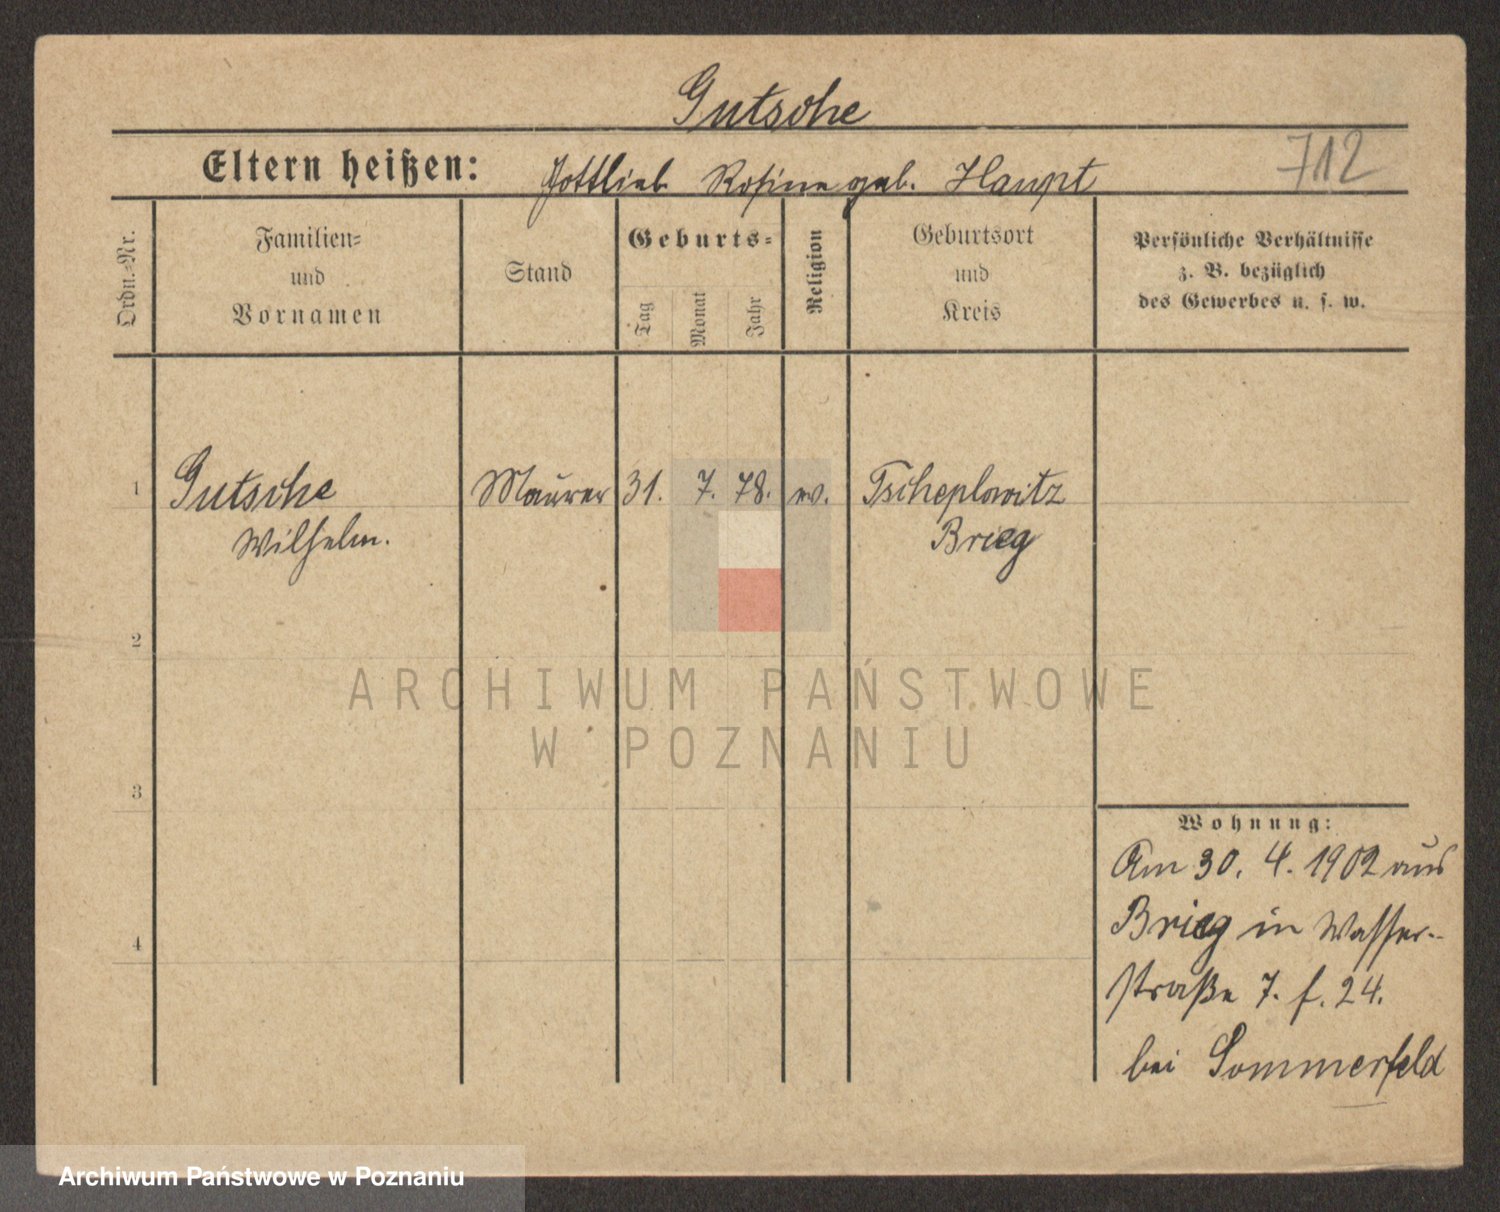 Gutsche
Eltern heißen: Gottlieb Rosine geb. Haupt 712
Ordn.-Nr.
Familien-
und
Vornamen
Stand
Geburts-
Tag
Monat
Jahr
Religion
Geburtsort
und
Kreis
Persönliche Verhältnisse
z. B. bezüglich
des Gewerbes u. s. w.
1 Gutsche Maurer 31. 7. 78. ev. Tscheplowitz
Wilhelm. Brieg
2
3
4
Wohnung:
Am 30. 4. 1902 aus
Brieg in Wasser-
straße 7. f. 24.
bei Sommerfeld
ARCHIWUM PAŃSTWOWE
W POZNANIU
Archiwum Państwowe w Poznaniu